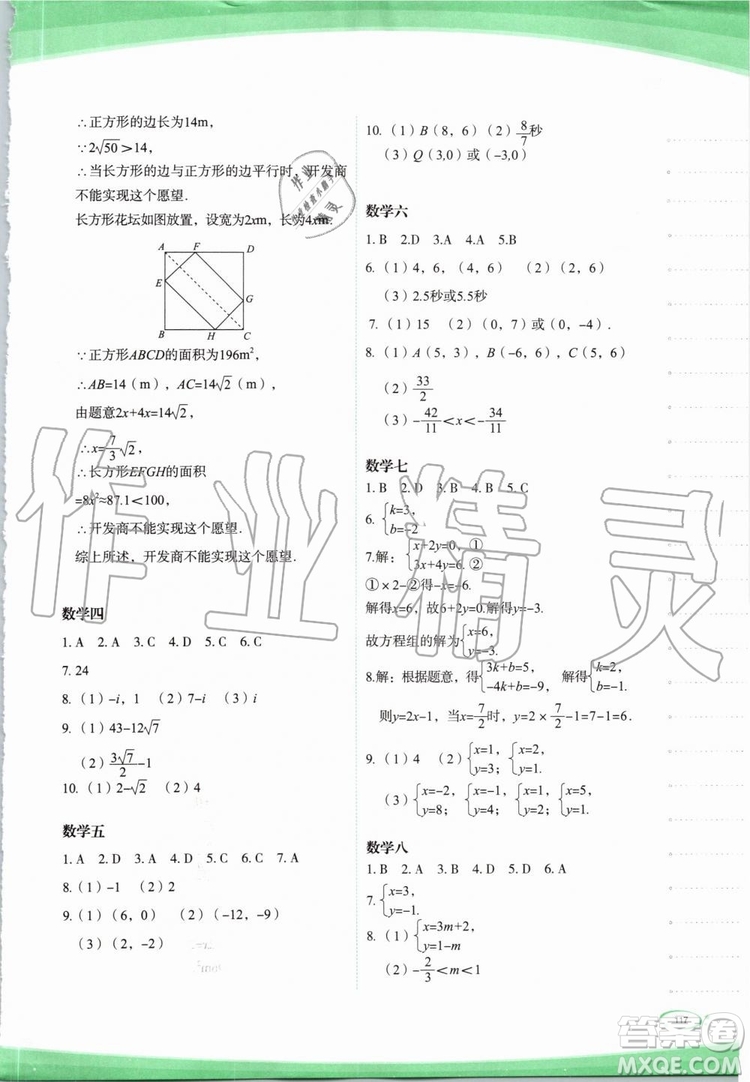 ∴正方形的边长为14m，
∵2√50＞14，
∴当长方形的边与正方形的边平行时，开发商
不能实现这个愿望.
长方形花坛如图放置，设宽为2xm，长为4xm.
A F D
E
G
B H C
∵正方形ABCD的面积为196m²，
∴AB=14（m），AC=14√2（m），
由题意2x+4x=14√2，
∴x=7/3√2，
∴长方形EFGH的面积
=8x²≈87.1＜100，
∴开发商不能实现这个愿望.
综上所述，开发商不能实现这个愿望.
数学四
1. A 2. A 3. C 4. D 5. C 6. C
7. 24
8.（1）-i，1 （2）7-i （3）i
9.（1）43-12√7
（2）3√7/2-1
10.（1）2-√2 （2）4
数学五
1. A 2. D 3. D 4. D 5. C 6. C 7. A
8.（1）-1 （2）2
9.（1）（6，0） （2）（-12，-9）
（3）（2，-2）
10.（1）B（8，6）（2）8/7秒
（3）Q（3,0）或（-3,0）
数学六
1. B 2.D 3.A 4.A 5.B
6.（1）4，6，（4，6） （2）（2，6）
（3）2.5秒或5.5秒
7.（1）15 （2）（0，7）或（0，-4）.
8.（1）A（5，3），B（-6，6），C（5，6）
（2）33/2
（3）-42/11＜x＜-34/11
数学七
1. B 2. D 3. A 4. B 5. C
6. {k=3，
b=-2
7.解：{x+2y=0，①
3x+4y=6. ②
①×2-②得-x=-6.
解得x=6，故6+2y=0.解得y=-3.
故方程组的解为{x=6，
y=-3.
8.解：根据题意，得{3k+b=5， 解得{k=2，
-4k+b=-9， b=-1.
则y=2x-1，当x=7/2时，y=2×7/2-1=7-1=6.
9.（1）4 （2）{x=1， {x=2，
y=3； y=1.
（3）{x=-2， {x=-1， {x=1，
y=8； y=4； y=2.
数学八
1. B 2. A 3. C 4. D 5. D 6. A
7. {x=3，
y=1.
8.（1）{x=3m+2，
y=1-m
（2）-2/3＜m＜1
117
作业精灵
答案圈
MXQE.COM